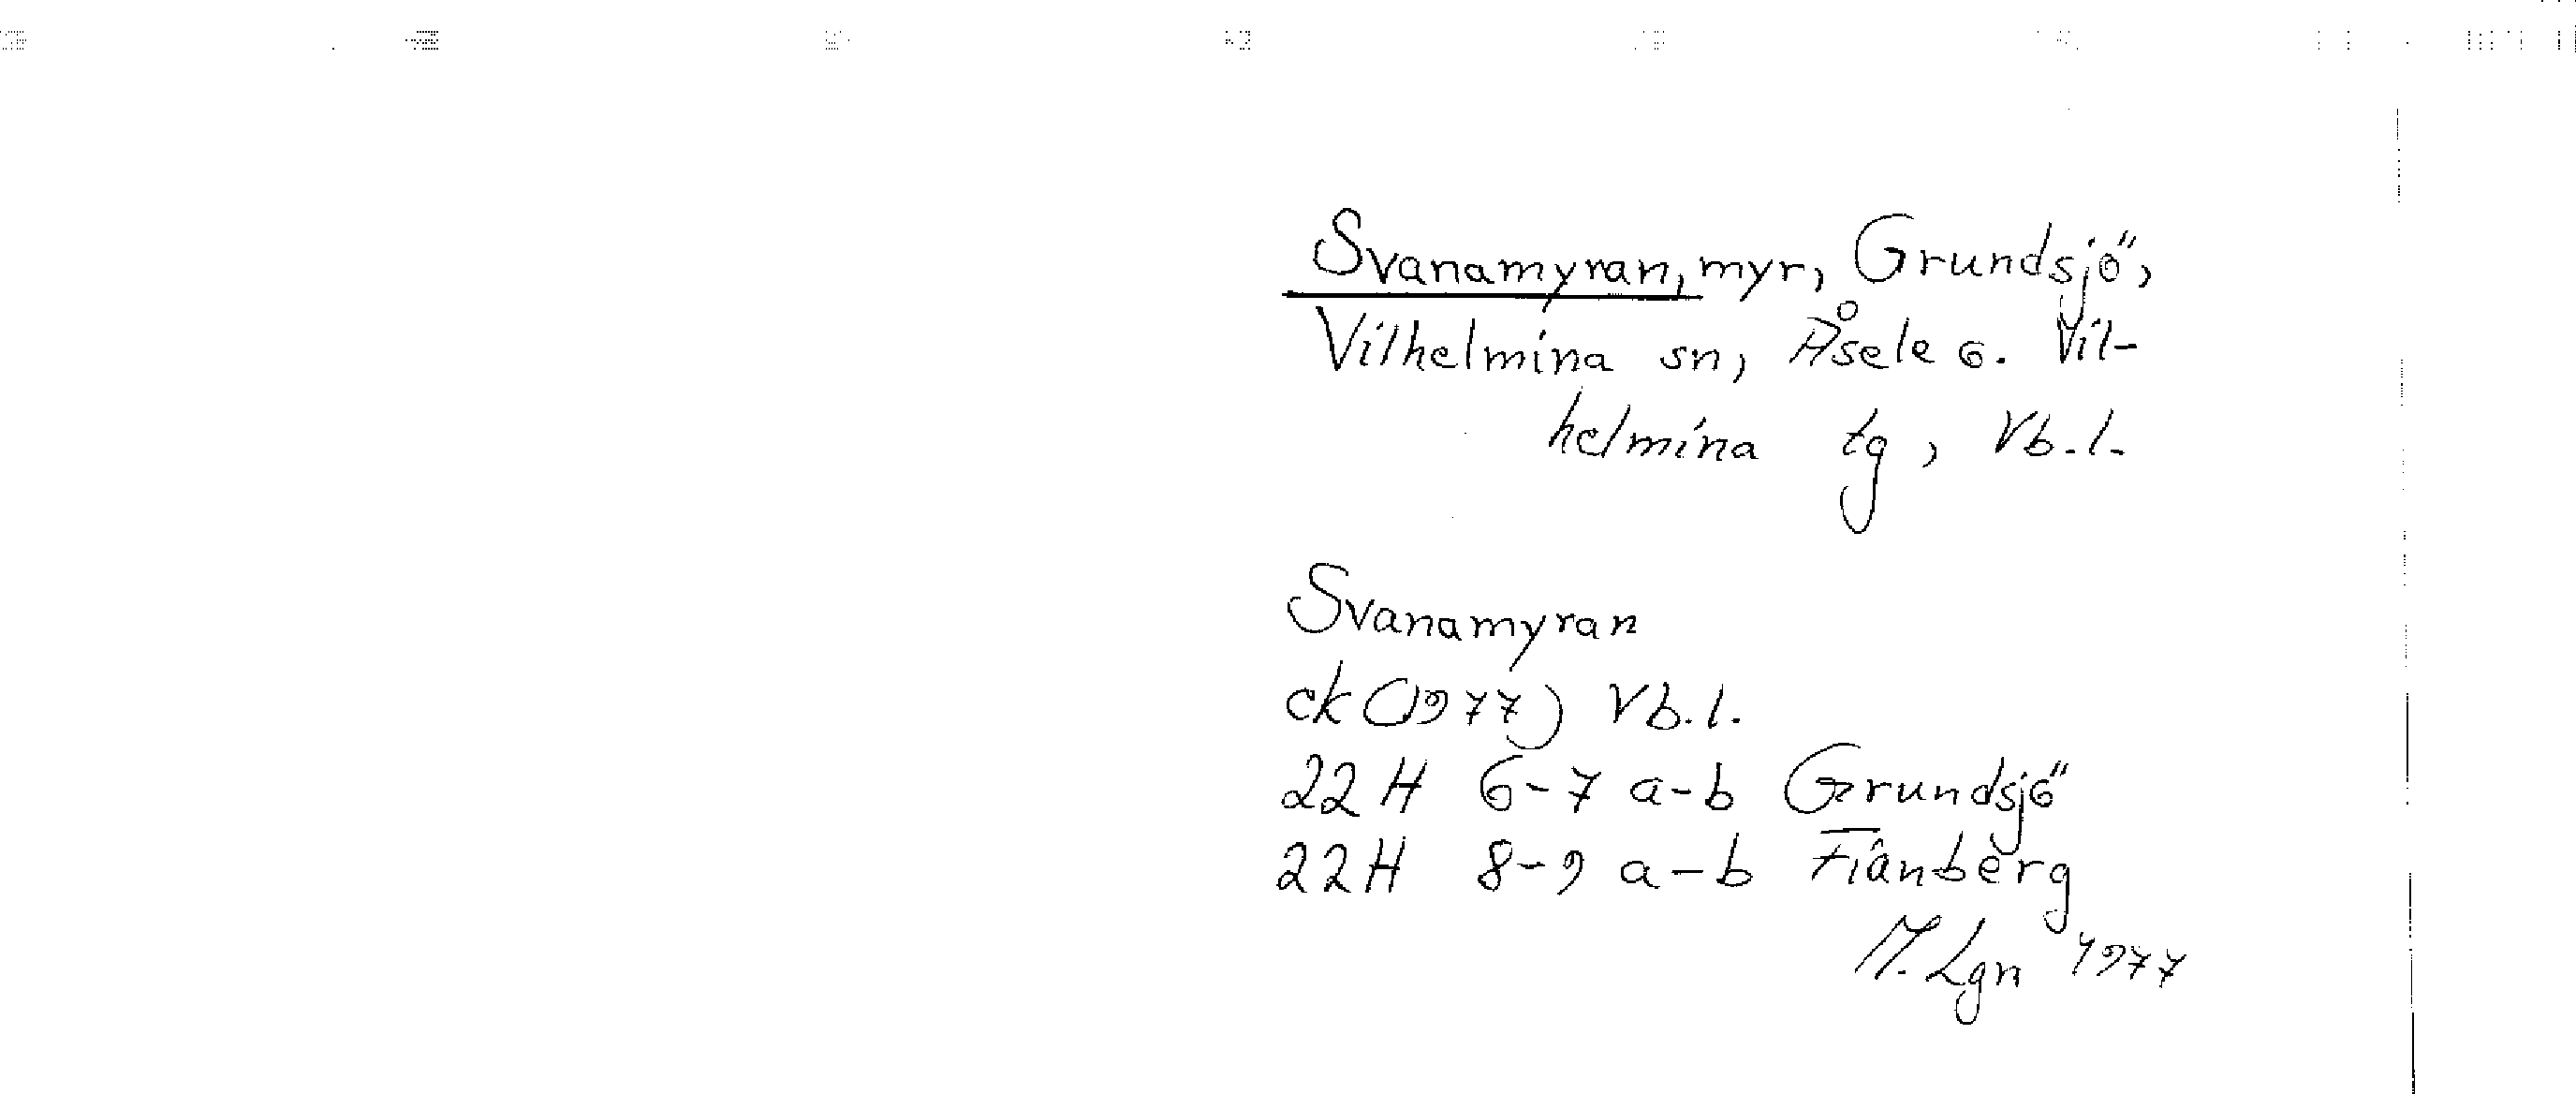 Svanamyran, myr, Grundsjö,
Vilhelmina sn, Åsele o. Vil-
helmina tg, Vb.l.
Svanamyran
ek (1977) Vb.l.
22 H 6-7 a-b Grundsjö
22 H 8-9 a-b Fiånberg
M. Lgn 1977